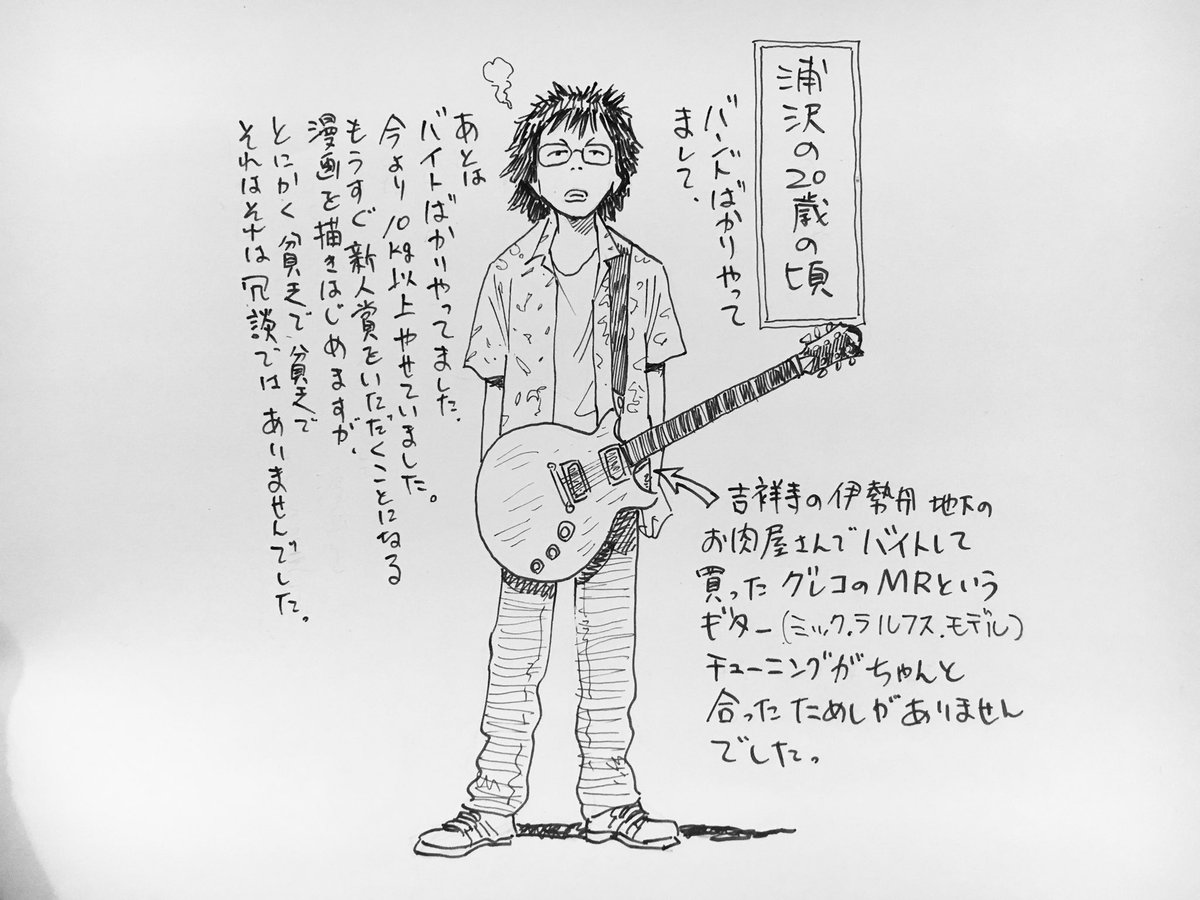 浦沢の20歳の頃
バンドばかりやって
まして、
あとは
バイトばかりやってました。
今より10kg以上やせていました。
もうすぐ新人賞をいただくことになる
漫画を描きはじめますが、
とにかく貧乏で貧乏で
それはそれは冗談ではありませんでした。
吉祥寺の伊勢丹地下の
お肉屋さんでバイトして
買ったグレコのMRという
ギター(ミック.ラルフス.モデル)
チューニングがちゃんと
合ったためしがありません
でした。